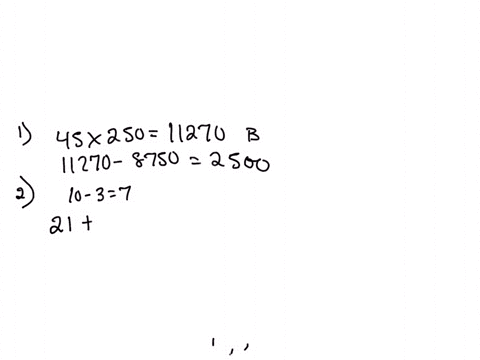 1) 45 x 250 = 11270 B
11270 - 8750 = 2500
2) 10 - 3 = 7
21 +